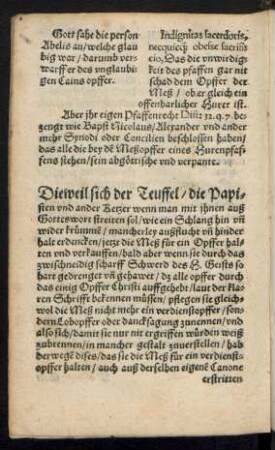 Gott sahe die person
Abelis an/welche glau
big war/darumb ver-
warff er des vnglaubi-
gen Cains opffer.
Indignitas sacerdotis,
necquicꝗ̃ obesse sacrifi
cio. Das die vnwirdig
keit des pfaffen gar nit
schad dem Opffer der
Meß/ob er gleich ein
offenbarlicher Hurer ist.
Aber jhr eigen Pfaffenrecht Disti: 32. q. 7. be-
zeugt wie Bapst Nicolaus/Alexander vnd ander
mehr Synodi oder Concilien beschlossen haben/
das alle die bey dē Meßopffer eines Hurenpfaf-
fens stehen/sein abgöttische vnd verpante.
Dieweil sich der Teuffel/die Papi-
sten vnd ander Ketzer wenn man mit jhnen auß
Gottes wort streiten sol/wie ein Schlang hin vñ
wider krümmē/mancherley außflucht vñ hinder
halt erdencken/jetzt die Meß für ein Opffer hal-
ten vnd verkauffen/bald aber wenn sie durch das
zwischneidig scharff Schwerd des H. Geists so
hart gedrenget vñ gehawet/dz alle opffer durch
das einig Opffer Christi auffgehebt/laut der kla-
ren Schrifft bekennen müssen/pflegen sie gleich-
wol die Meß nicht mehr ein verdienstopffer/son-
dern Lobopffer oder dancksagung zunennen/vnd
also sich/damit sie nur nit ergriffen würden weiß
zubrennen/in mancher gestalt zuuerstellen/hab
der wegē dises/das sie die Meß für ein verdienst-
opffer halten/auch auß derselben eigenē Canone
erstritten